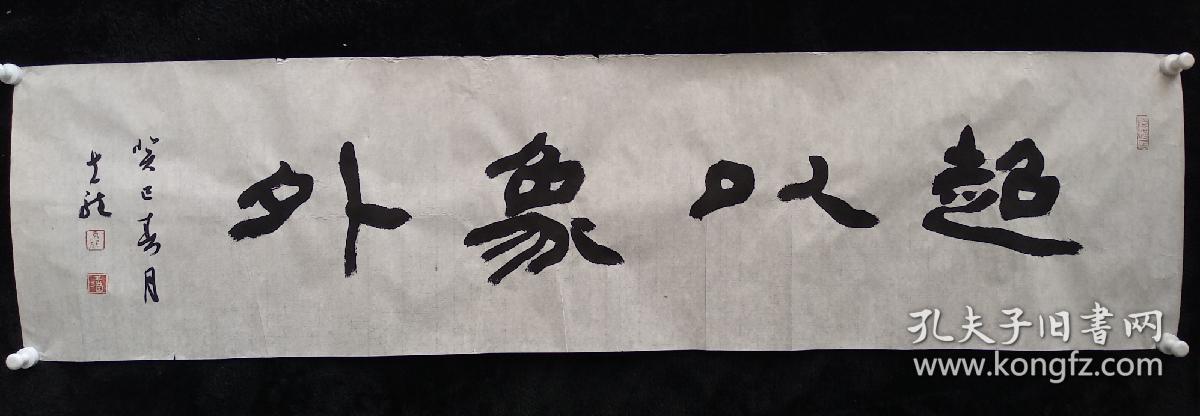 超以象外
癸巳春月
孔夫子旧書网
www.kongfz.com